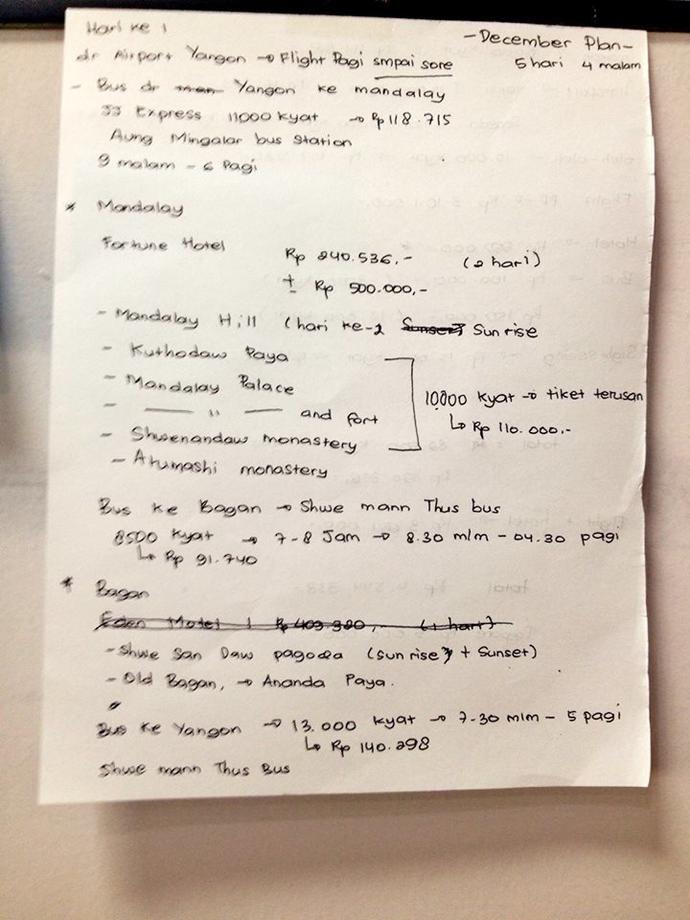 Hari ke 1
- December Plan -
5 hari 4 malam
dr Airport Yangon → Flight Pagi smpai sore
- Bus dr Yangon ke mandalay
JJ Express 11000 kyat → Rp 118.715
Aung Mingalar bus station
9 malam - 6 Pagi
* Mandalay
Fortune Hotel Rp 240.536,- (2 hari)
± Rp 500.000,-
- Mandalay Hill (hari ke-2 Sunset Sunrise
- Kuthodaw Paya
- Mandalay Palace
- —— " —— and fort
10000 kyat → tiket terusan
↳ Rp 110.000.-
- Shwenandaw monastery
- Atumashi monastery
Bus ke Bagan → Shwe mann Thus bus
8500 kyat → 7-8 Jam → 8.30 mlm - 04.30 pagi
↳ Rp 91.740
* Bagan
Eden Motel 1 Rp 409.380,- (1 hari)
- Shwe San Daw pagoda (sunrise + Sunset)
- Old Bagan, → Ananda Paya.
Bus ke Yangon → 13.000 kyat → 7.30 mlm - 5 pagi
↳ Rp 140.298
Shwe mann Thus Bus